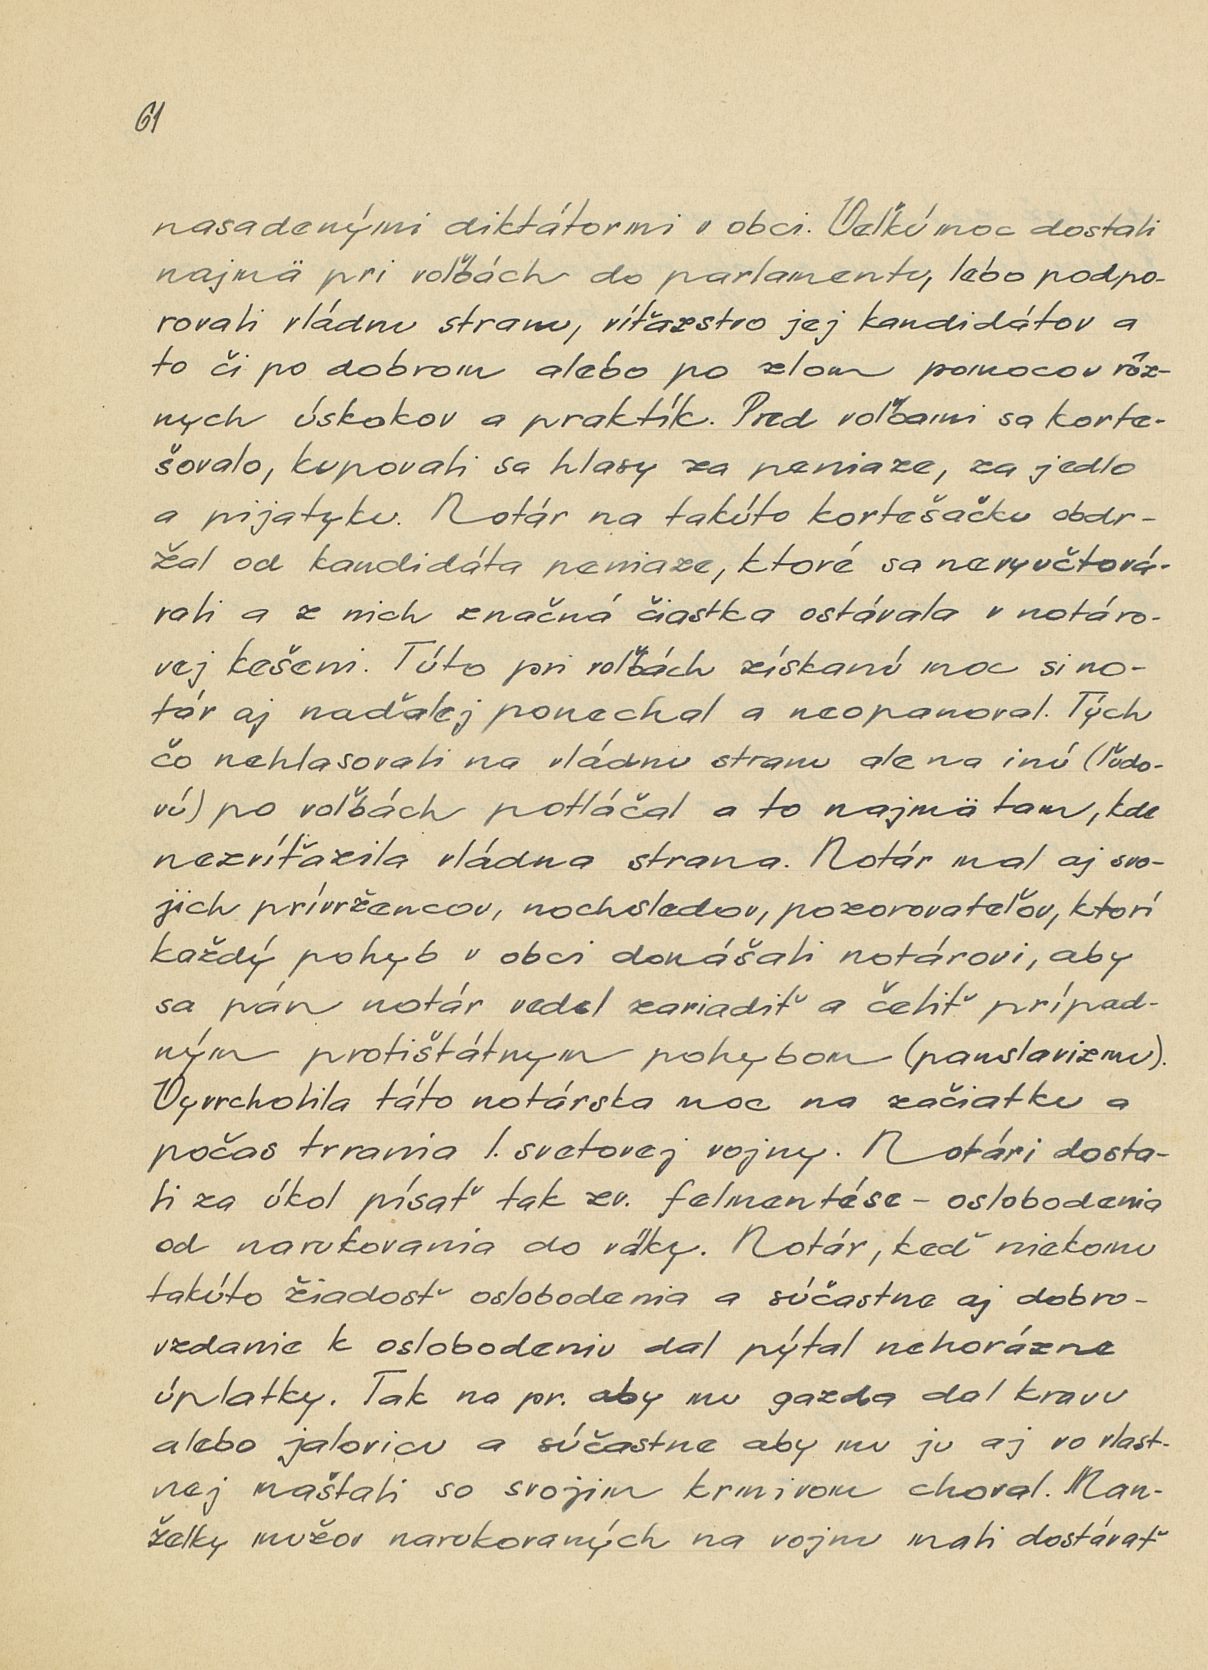 61
nasadenými diktátormi v obci. Veľkú moc dostali
najmä pri voľbách do parlamentu, lebo podpo-
rovali vládnu stranu, víťazstvo jej kandidátov a
to či po dobrom alebo po zlom pomocou rôz-
nych úskokov a praktík. Pred voľbami sa korte-
šovalo, kupovali sa hlasy za peniaze, za jedlo
a pijatyku. Notár na takúto kortešačku obdr-
žal od kandidáta peniaze, ktoré sa nevyučtová-
vali a z nich značná čiastka ostávala v notáro-
vej kešeni. Túto pri voľbách získanú moc si no-
tár aj naďalej ponechal a neopanoval. Tých
čo nehlasovali na vládnu stranu ale na inú (ľudo-
vú) po voľbách potláčal a to najmä tam, kde
nezvíťazila vládna strana. Notár mal aj svo-
jich prívržencov, nochsledov, pozorovateľov, ktorí
každý pohyb v obci donášali notárovi, aby
sa pán notár vedel zariadiť a čeliť prípad-
ným protištátnym pohybom (panslavizmu).
Vyvrcholila táto notárska moc na začiatku a
počas trvania I. svetovej vojny. Notári dosta-
li za úkol písať tak zv. felmentése - oslobodenia
od narukovania do vojky. Notár, keď niekomu
takúto žiadosť oslobodenia a súčastne aj dobro-
vzdanie k oslobodeniu dal pýtal nehorázne
úplatky. Tak na pr. aby mu gazda dal kravu
alebo jalovicu a súčastne aby mu ju aj vo vlast-
nej maštali so svojim krmivom choval. Man-
želky mužov narukovaných na vojnu mali dostávať